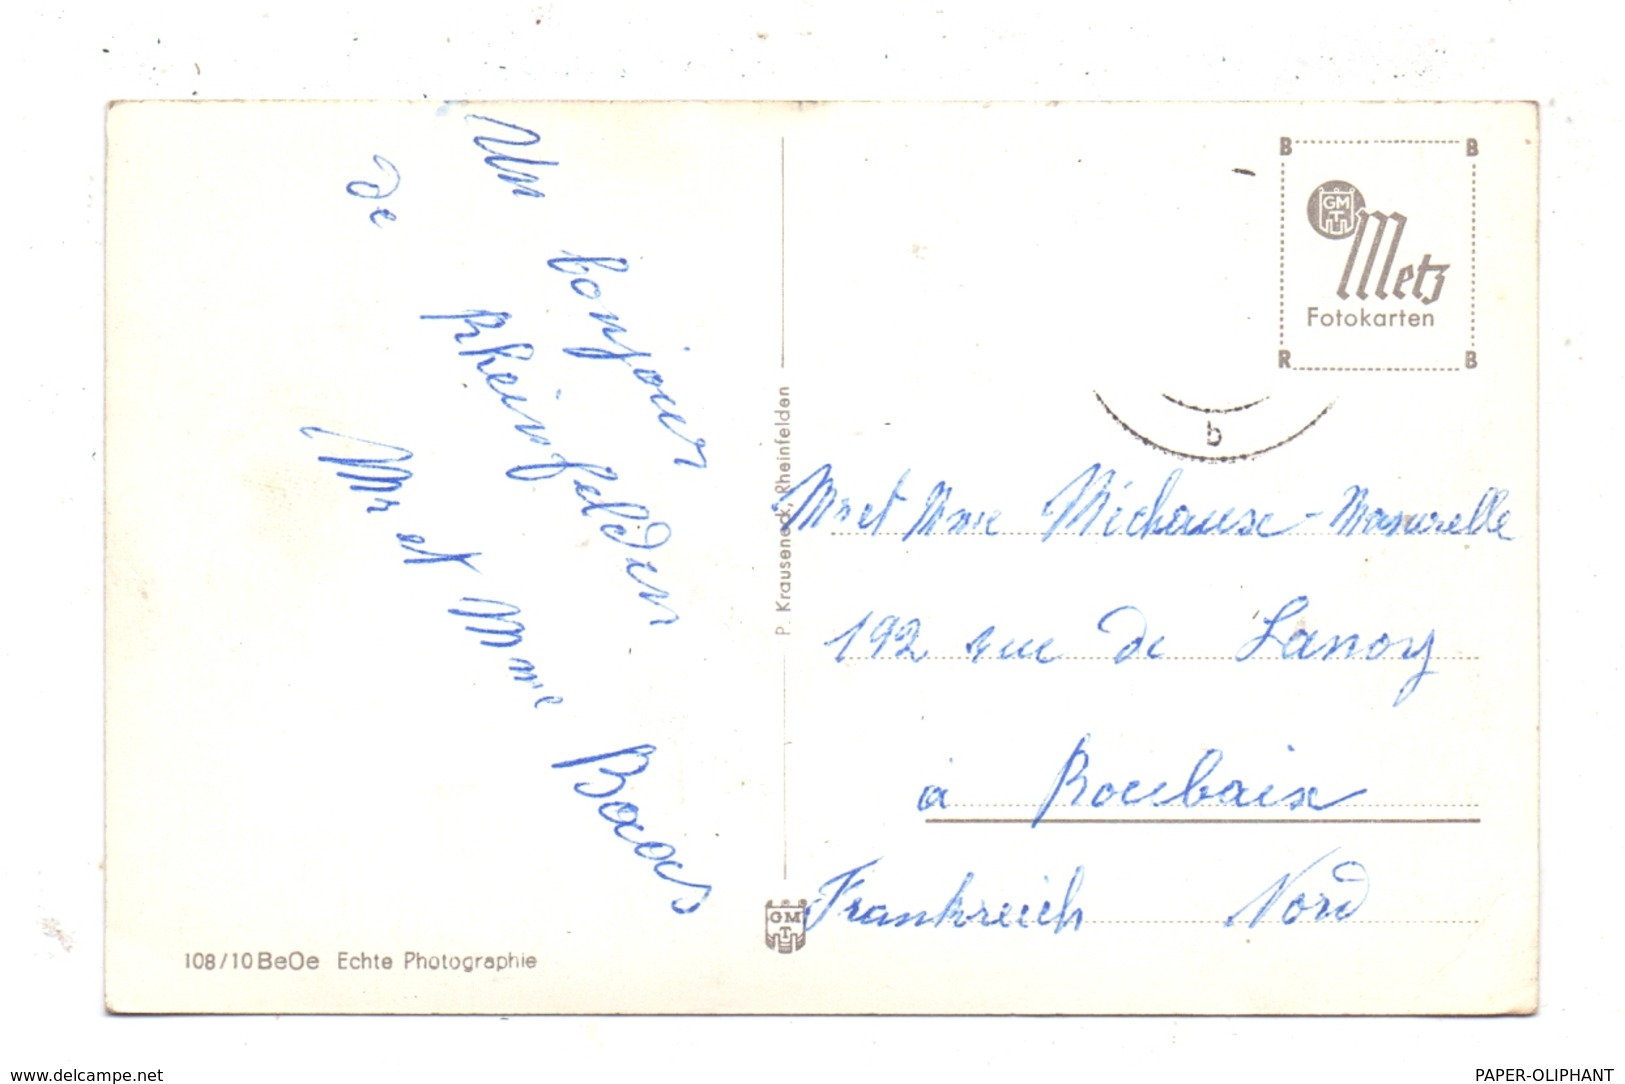 Un bonjour
de Rheinfelden
Mr et Mme Baas
108/10 BeOe Echte Photographie
P. Krauseneck, Rheinfelden
GMT
B B
GMT
Metz
Fotokarten
R B
b
Mr et Mme
192 rue de Lanoy
à Roubaix
Frankreich Nord
www.delcampe.net
PAPER-OLIPHANT